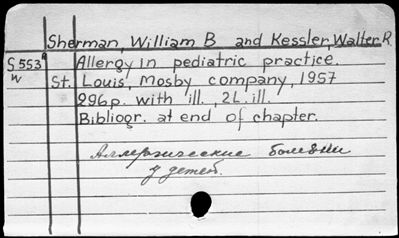 Sherman, William B and Kessler, Walter R.
S553 Allergy in pediatric practice.
W St. Louis, Mosby company, 1957
296p. with ill., 2L. ill.
Bibliogr. at end of chapter.
Аллергические болезни
у детей.